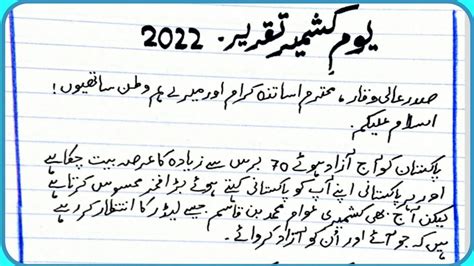 یومِ کشمیر تقریر۔ 2022
صدر عالی وقار، محترم اساتذہ کرام اور میرے ہم وطن ساتھیوں!
اسلام علیکم۔
پاکستان کو آج آزاد ہوئے 70 برس سے زیادہ کا عرصہ بیت چکا ہے
اور ہر پاکستانی اپنے آپ کو پاکستانی کہتے ہوئے بڑا فخر محسوس کرتا ہے
لیکن آج بھی کشمیری عوام محمد بن قاسم جیسے لیڈر کا انتظار کر رہے
ہیں کہ جو آئے اور اُن کو آزاد کروائے۔